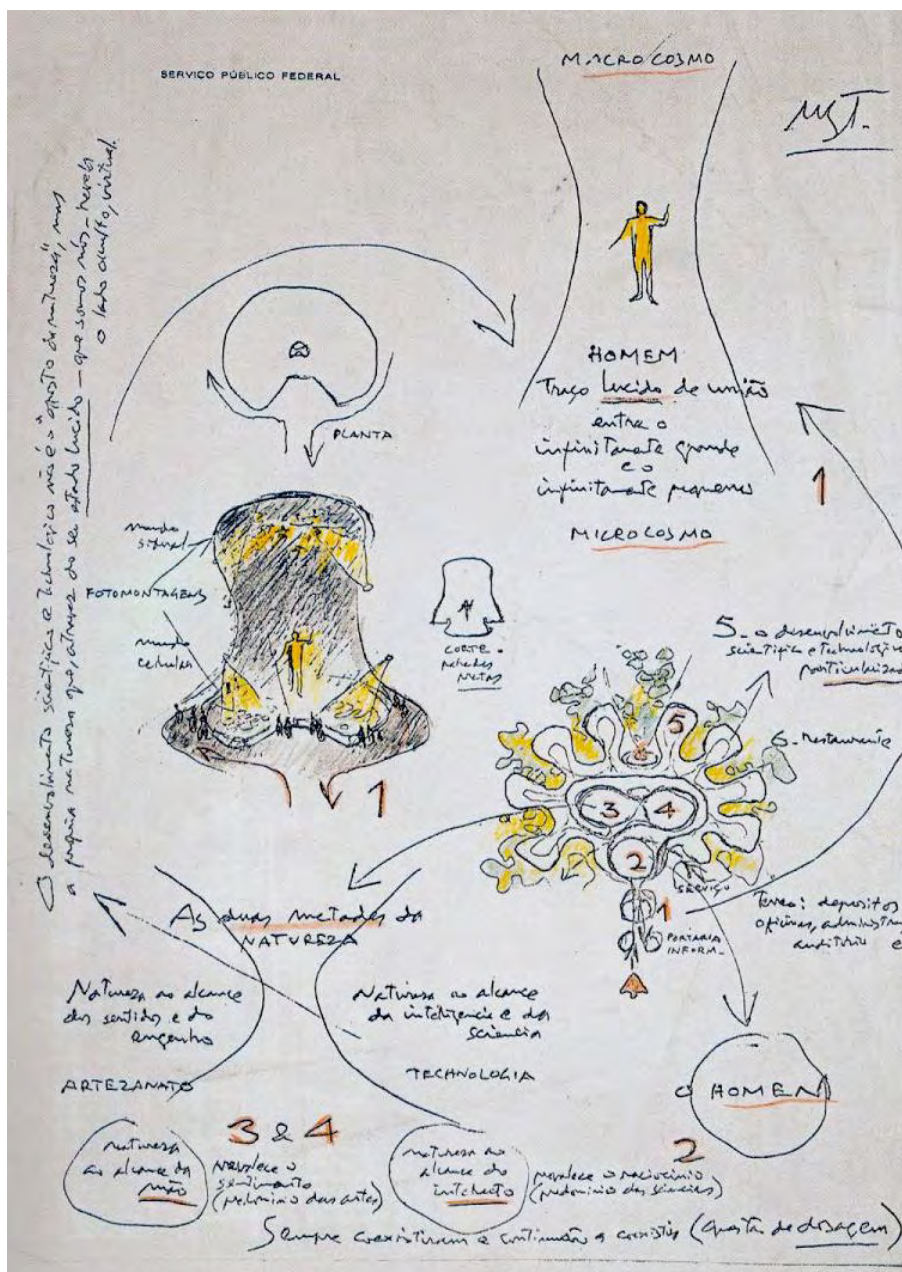 SERVIÇO PÚBLICO FEDERAL
MACROCOSMO
MST.
O desenvolvimento scientifico e technologico não é o "oposto da natureza", mas
a propria natureza que, atravez do seu estado lucido — que somos nós — revela
o lado oculto, virtual.
PLANTA
HOMEM
Traço lucido de união
entre o
infinitamente grande
e o
infinitamente pequeno
MICROCOSMO
1
mundo
FOTOMONTAGENS
mundo
celular
1
CORTE
paredes
5 - o desenvolvimento
scientifico e technologico
particularizado
6 - Restaurante
5
6
3
4
2
SERVIÇO
1
PORTARIA
INFORM.
Terreo: depositos
oficinas, administra
auditorio e
As duas metades da
NATUREZA
Natureza ao alcance
dos sentidos e do
engenho
ARTEZANATO
Natureza ao alcance
da inteligencia e da
sciencia
TECHNOLOGIA
O HOMEM
natureza
ao alcance da
mão
3 & 4
prevalece o
sentimento
(predominio das artes)
natureza ao
alcance do
intelecto
2
prevalece o raciocinio
(predominio das sciencias)
Sempre coexistiram e continuarão a coexistir (questão de dosagem)